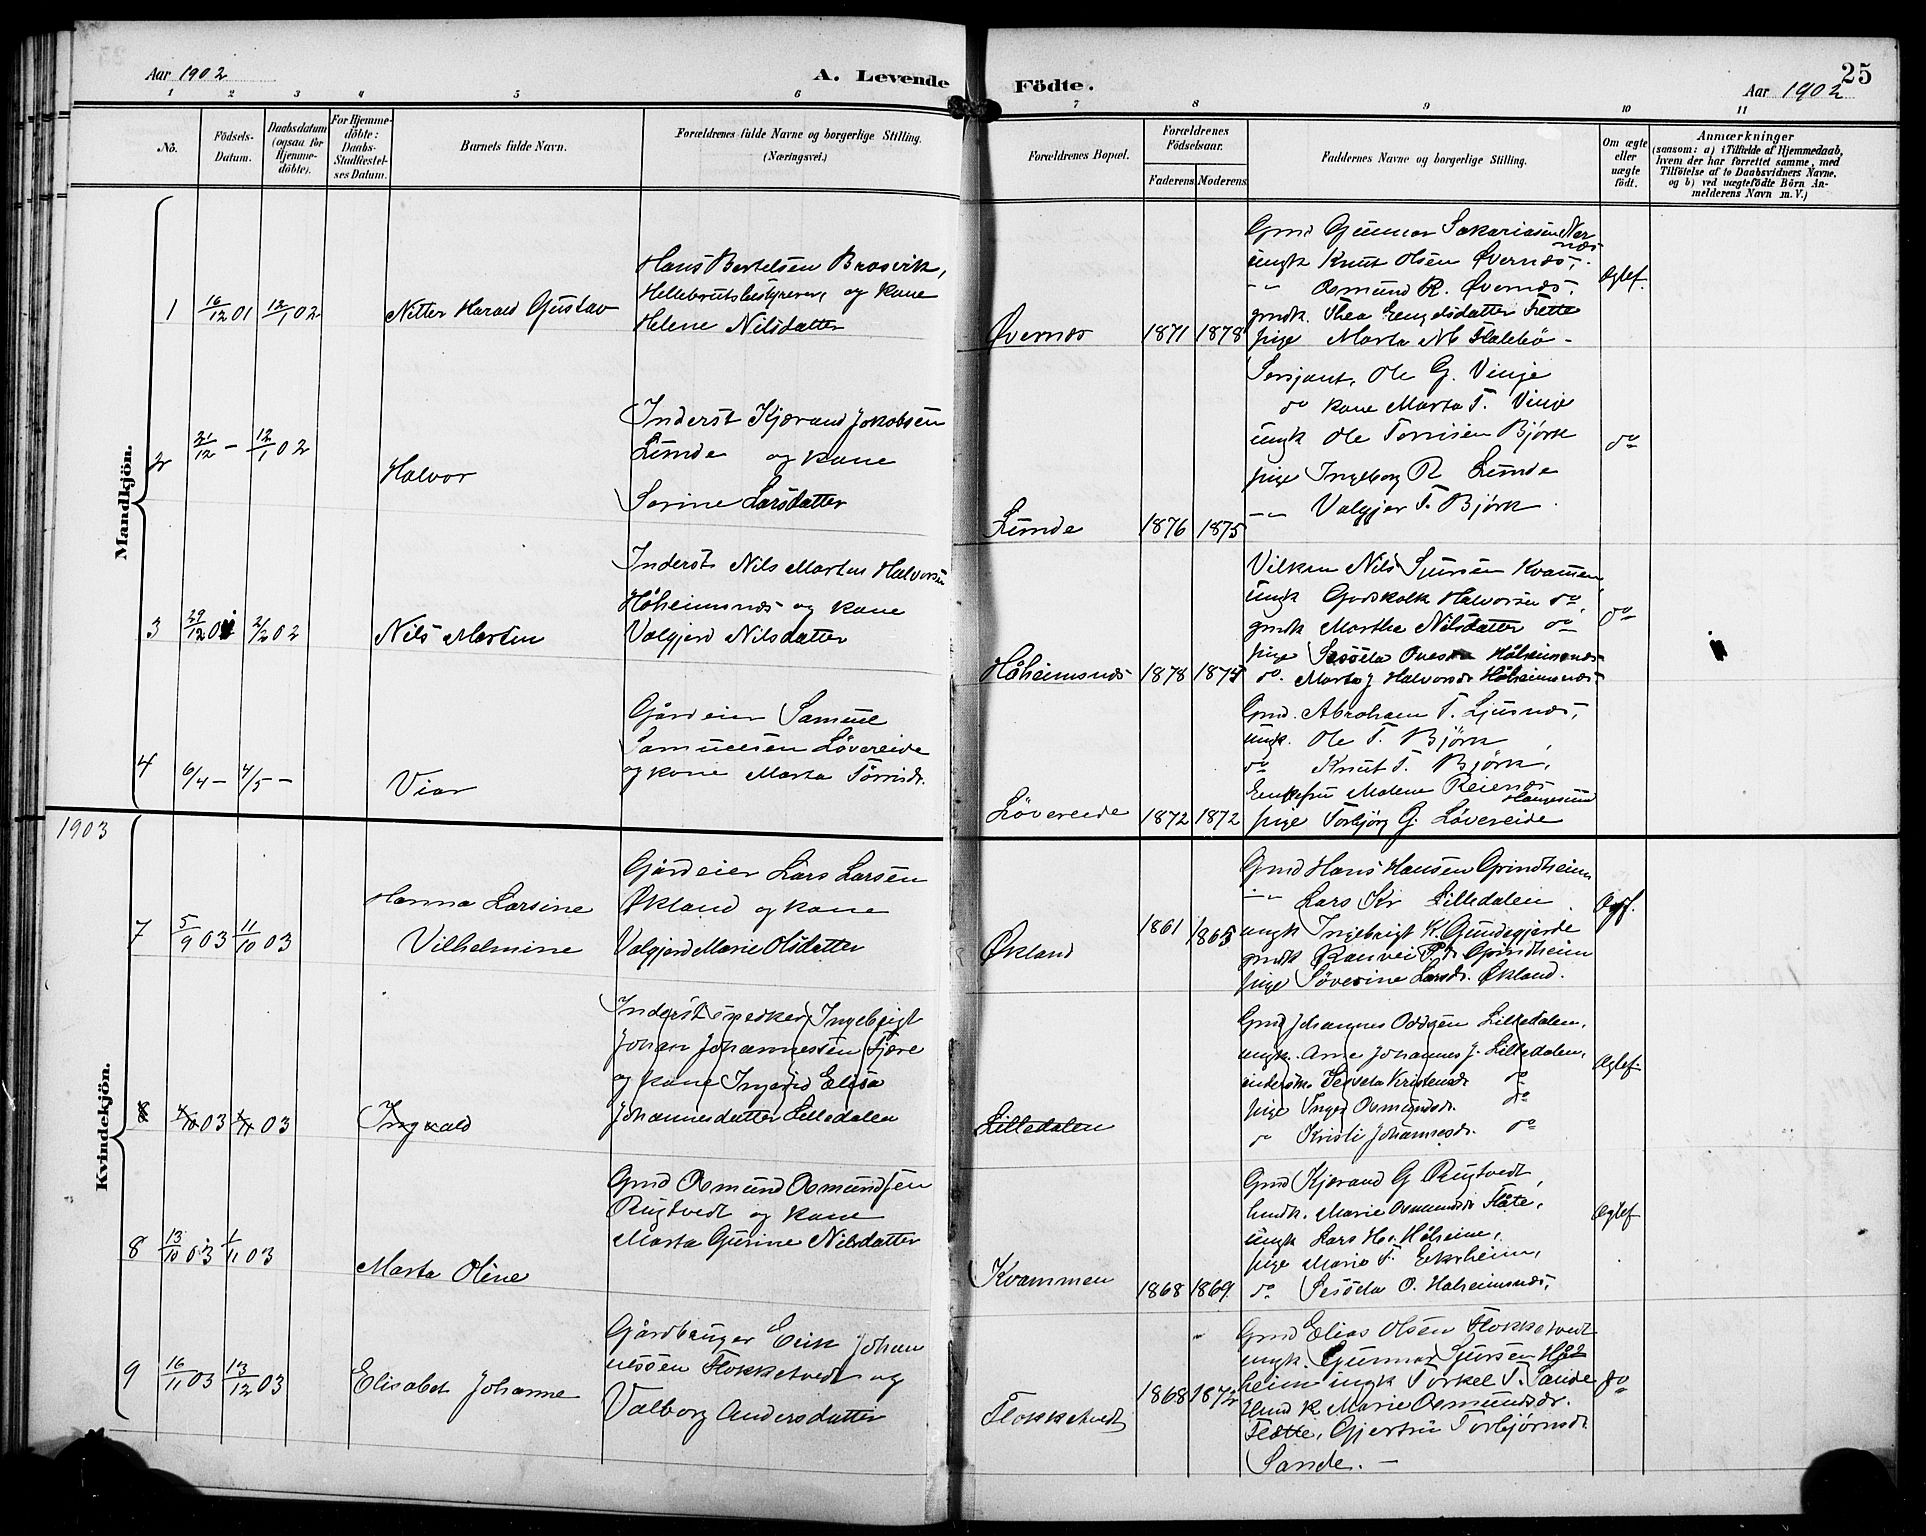 Aar 1902
A. Levende
Födte.
Aar 1902
25
1 2 3 4 5 6 7 8 9 10 11
No.
Födsels-
Datum.
Daabsdatum
(ogsaa for
Hjemme-
döbte).
For Hjemme-
döbte:
Daabs-
Stadfæstel-
ses Datum.
Barnets fulde Navn.
Forældrenes fulde Navne og borgerlige Stilling.
(Næringsvei.)
Forældrenes Bopæl.
Forældrenes
Födselsaar.
Faderens. Moderens.
Faddernes Navne og borgerlige Stilling.
Om ægte
eller
uægte
födt.
Anmærkninger
(saasom: a) i Tilfælde af Hjemmedaab,
hvem der har forrettet samme, med
Tilföielse af to Daabsvidners Navne,
og b) ved uægtefödte Börn An-
melderens Navn m. V.)
Mandkjön.
1
16/12 01
12/1 02
Nitter Harald Gustav
Hans Bertelsen Brosvik,
og kone
Helene Nilsdatter
Øvernæs
1871
1878
Gmd Gunnar Sakariasen Nær
næs
ungk Knut Olsen Øvernæs,
-"- Osmund R. Øvernæs,
gmdk. Thea Engelsdatter Tætte
pige Marta M Flatebö -
Ægtef.
2
21/12 -
12/1 02
Halvor
Inderst Kjærand Jakobsen
Lunde og kone
Serine Larsdatter
Lunde
1876
1875
Sersjant, Ole G. Vinje
do kone Marta T. Vinje
ungk Ole Torrisen Bjørk
pige Ingeborg R Lunde
-"- Valgjer T. Bjørk.
do
3
29/12 01
2/2 02
Nils Marten
Inderst Nils Marten Halvorsen
Höheimsnæs og kone
Valgjerd Nilsdatter
Höheimsnæs
1878
1875
Nils Sjursen Kvamen,
ungk Godskalk Halvorsen do,
gmdk Martha Nilsdatter do
pige Sesöela Höheimsnæs
do. Marta J Halvorsdr Höheimsnæs
do
4
6/4 -
4/5 -
Viar
Gårdeier Samuel
Samuelsen Lövereide
og kone Marta Törrisdr.
Lövereide
1872
1872
Gmd. Abraham T. Ljusnæs,
ungk. Ole T. Bjørk,
do Knut T. Bjørk,
Enkefru Malene Reienæs
Haugesund
pige Torbjörg G. Lövereide
1903
Kvindekjön.
7
5/9 03
11/10 03
Hanna Larsine
Vilhelmine
Gårdeier Lars Larsen
Økland og kone
Valgjerd Marie Olsdatter
Økland
1861
1865
Gmd Hans Hansen Grindheim
-"- Lars Kr Lilledalen.
ungk Ingebrigt K. Gundegjerde
gmdk Ranvei P.dr Grindheim
pige Söverine Larsdr. Økland.
8
4/10 03
1/11 03
Ingvald
Inderst snedker Ingebrigt
Johan Johannessen Tjære
og kone Ingerid Elisa
Johannesdatter Lilledalen
Lilledalen
Gmd Johannes Oddsen Lilledalen,
ungk. Arne Johannes J. Lilledalen,
inderstk. Servela Kristensdr do
pige Inger Osmundsdr. do
do Kristi Johannesdr. do
Ægtef.
8
13/10 03
1/11 03
Marta Oline
Gmd Osmund Osmundsen
Rugtvedt og kone
Marta Gurine Nilsdatter
Kvammen
1868
1869
Gmd Kjærand G Rugtvedt,
husdk. Marie Osmundsdr Flåte,
ungk Lars H. Höheim,
pige Marie T. Eikeheim,
do Sesöela O. Höheimsnæs,
Ægtef
9
16/11 03
13/12 03
Elisabet Johanne
Gårdbruger Erik Johan
nessen Flokketvedt og
Valborg Andersdatter
Flokketvedt
1868
1872
Gmd Elias Olsen Flokketvedt
ungk. Gunnar Sjursen Höl
heim ungk Torkel T. Sande
Husd k Marie Osmundsdr.
Flætte, Gjertrü Torbjörnsdr.
Sande. -
do